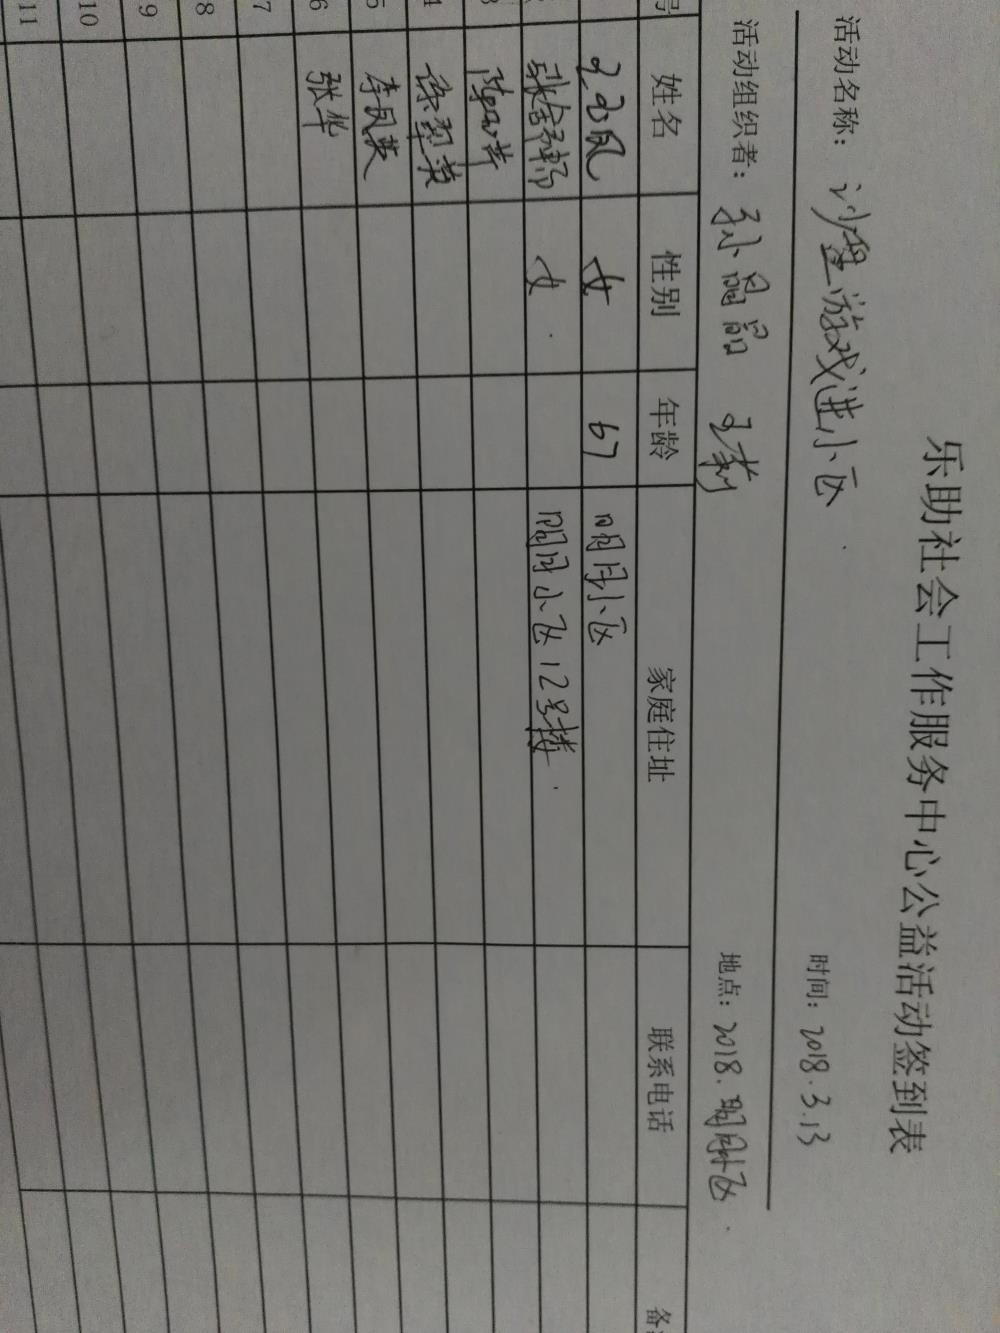 乐助社会工作服务中心公益活动签到表
活动名称：沙盘游戏进小区 时间：2018.3.13
活动组织者：孙晶晶 王莉 地点：2018.明月小区
号 姓名 性别 年龄 家庭住址 联系电话 备
女 67 明月小区
女 明月小区12号楼
3
4
5 李凤英
6 张华
7
8
9
10
11